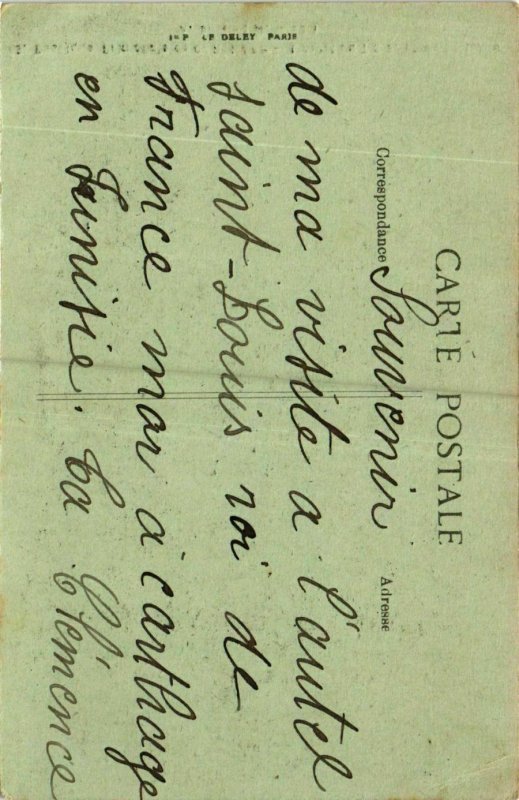 CARTE POSTALE
Correspondance
Adresse
Souvenir
de ma visite a l'autel
saint-Louis roi de
France mor a carthage
en Tunisie. ta Clémence
IMP LE DELEY PARIS